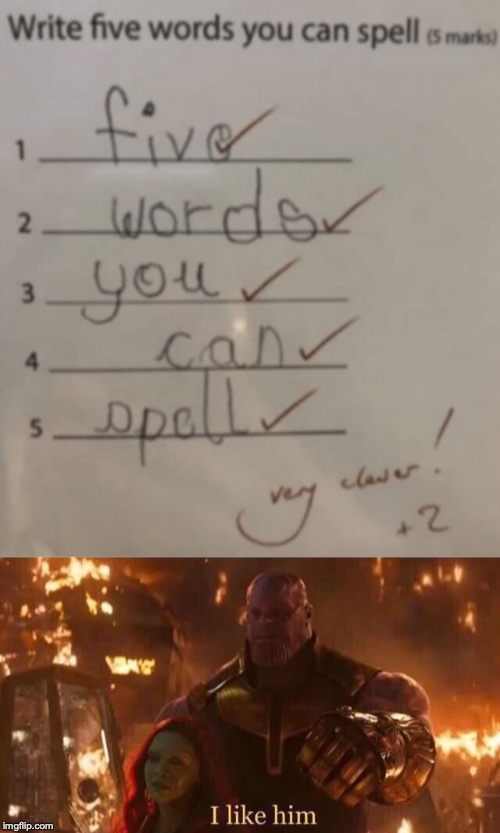 Write five words you can spell (5 marks)
1 five
2 words
3 you
4 can
5 spell
very clever!
+2
I like him
imgflip.com